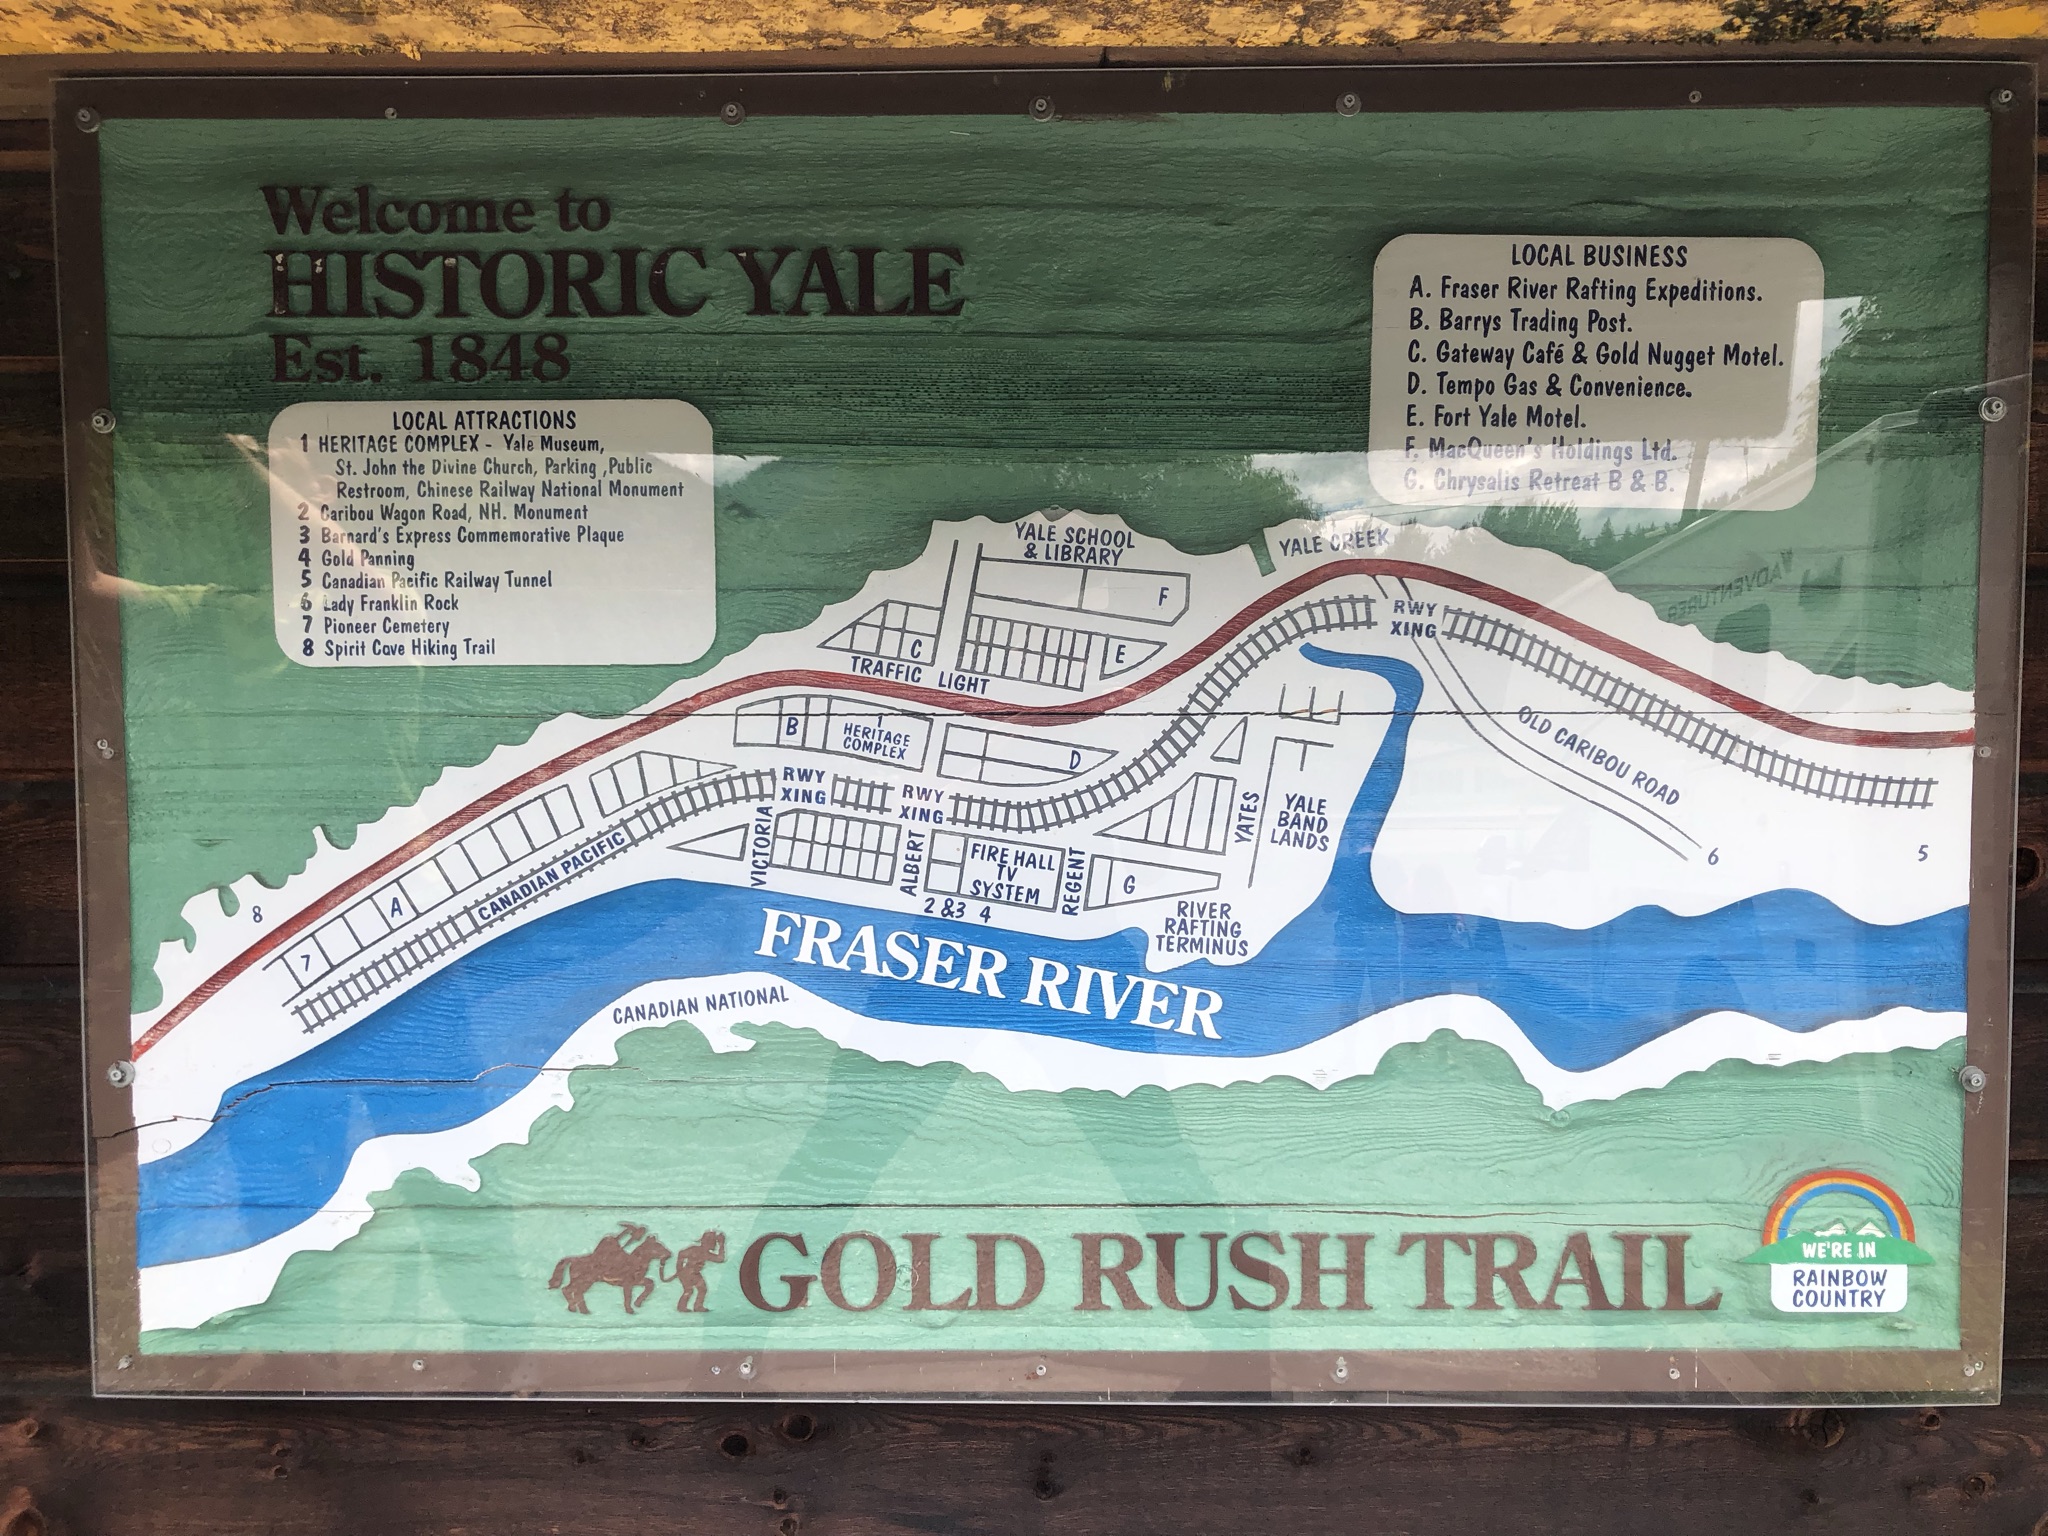 Welcome to
HISTORIC YALE
Est. 1848
LOCAL ATTRACTIONS
1 HERITAGE COMPLEX - Yale Museum,
St. John the Divine Church, Parking ,Public
Restroom, Chinese Railway National Monument
2 Caribou Wagon Road, NH. Monument
3 Barnard's Express Commemorative Plaque
4 Gold Panning
5 Canadian Pacific Railway Tunnel
6 Lady Franklin Rock
7 Pioneer Cemetery
8 Spirit Cave Hiking Trail
LOCAL BUSINESS
A. Fraser River Rafting Expeditions.
B. Barrys Trading Post.
C. Gateway Café & Gold Nugget Motel.
D. Tempo Gas & Convenience.
E. Fort Yale Motel.
F. MacQueen's Holdings Ltd.
G. Chrysalis Retreat B & B.
YALE SCHOOL
& LIBRARY
YALE CREEK
F
C
E
TRAFFIC LIGHT
RWY
XING
B
1
HERITAGE
COMPLEX
D
OLD CARIBOU ROAD
RWY
XING
RWY
XING
VICTORIA
ALBERT
REGENT
YATES
YALE
BAND
LANDS
CANADIAN PACIFIC
FIRE HALL
TV
SYSTEM
G
2 &3 4
6
5
8
A
7
RIVER
RAFTING
TERMINUS
FRASER RIVER
CANADIAN NATIONAL
GOLD RUSH TRAIL
WE'RE IN
RAINBOW
COUNTRY
ADVENTURES